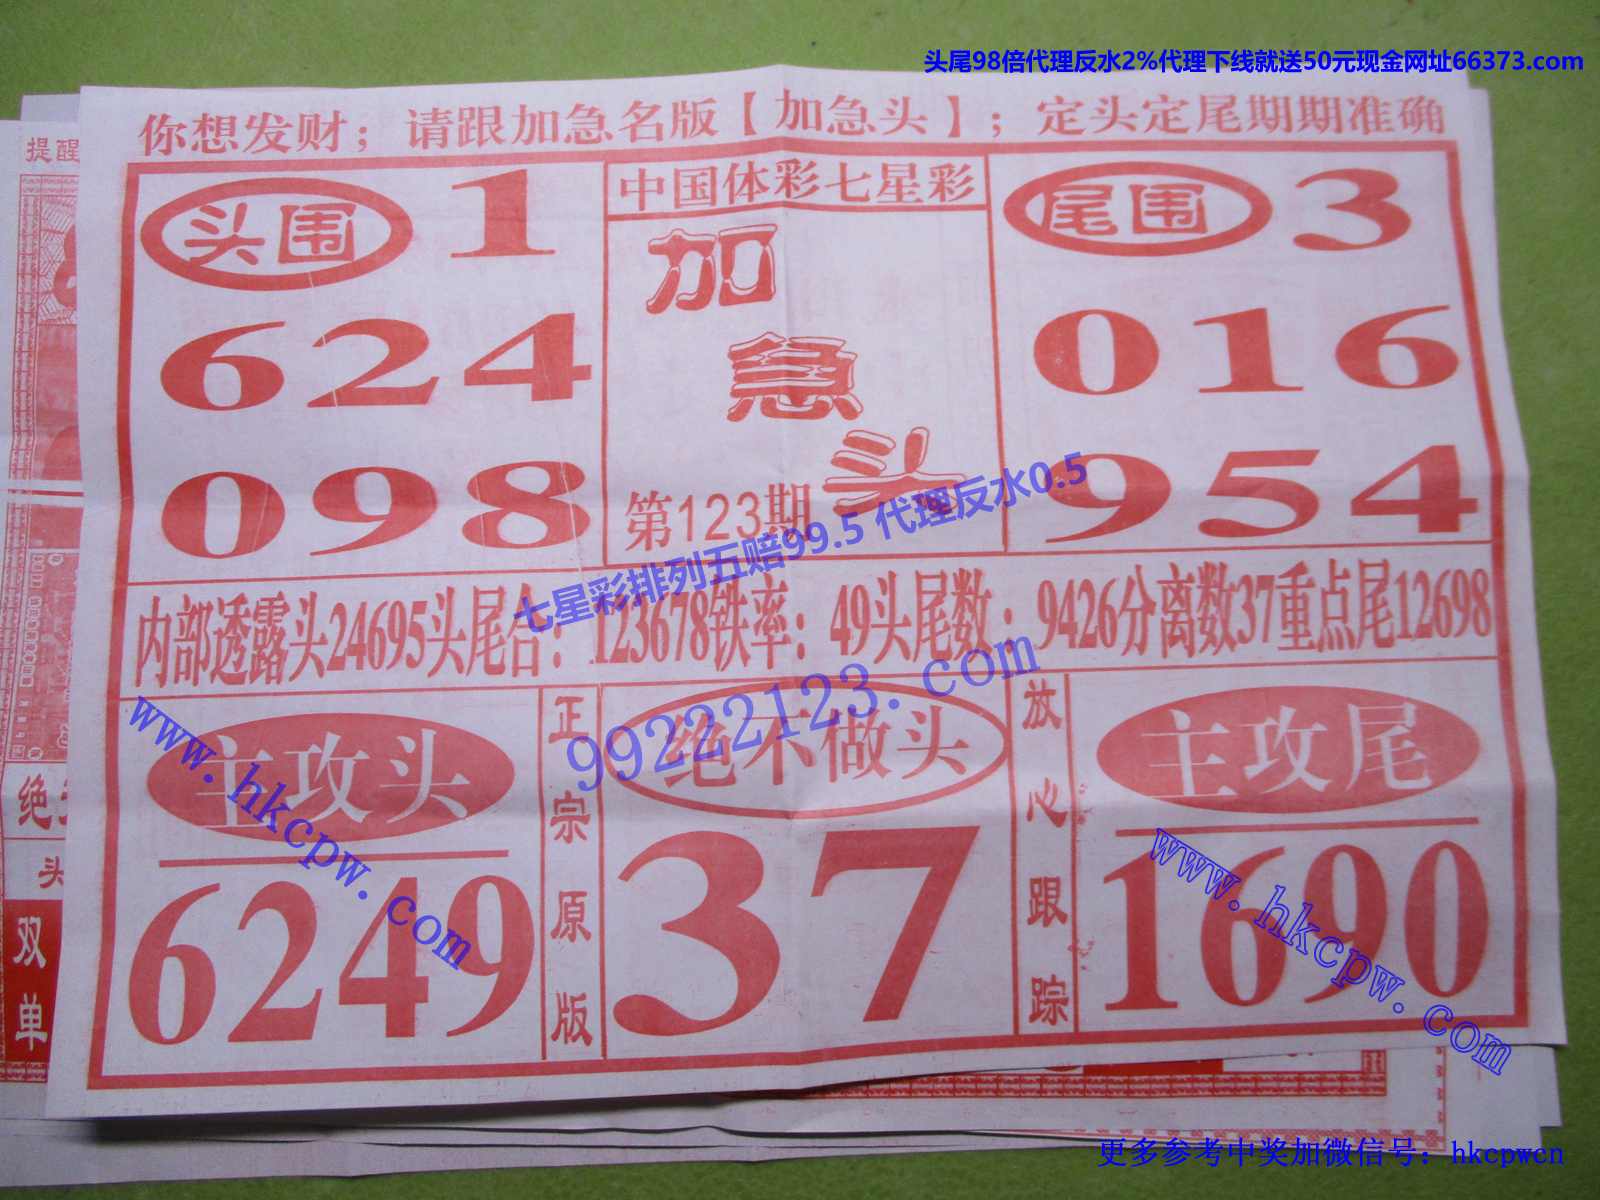 头尾98倍代理反水2%代理下线就送50元现金网址66373.com
你想发财；请跟加急名版【加急头】；定头定尾期期准确
提醒
头围 1
624
098
中国体彩七星彩
加
急
头
第123期
尾围 3
016
954
七星彩排列五赔99.5 代理反水0.5
内部透露头24695头尾合：123678铁率：49头尾数：9426分离数37重点尾12698
99222123.com
www.hkcpw.com
主攻头
6249
正宗原版
绝不做头
37
放心跟踪
主攻尾
1690
www.hkcpw.com
绝
头
双
单
更多参考中奖加微信号：hkcpwcn